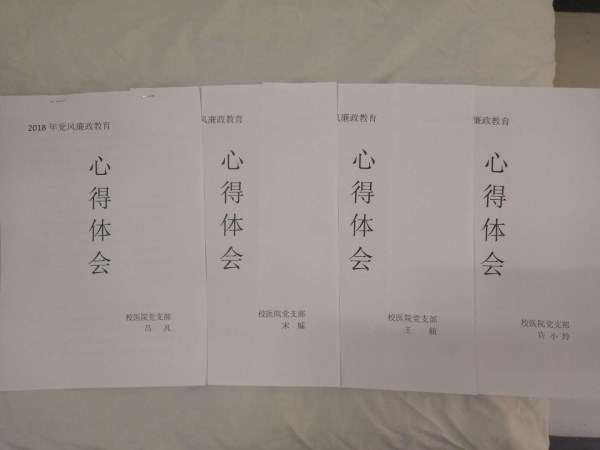 2018 年党风廉政教育
心得体会
校医院党支部
吕 凡
风廉政教育
心得体会
校医院党支部
宋 臧
风廉政教育
心得体会
校医院党支部
王 毓
廉政教育
心得体会
校医院党支部
许小玲